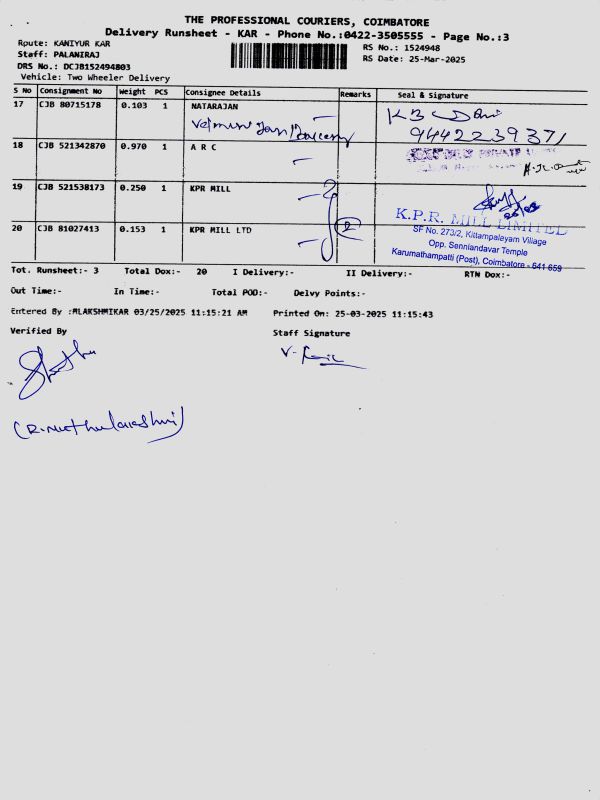 THE PROFESSIONAL COURIERS, COIMBATORE
Delivery Runsheet - KAR - Phone No.:0422-3505555 - Page No.:3
Route: KANIYUR KAR
RS No.: 1524948
Staff: PALANIRAJ
RS Date: 25-Mar-2025
DRS No.: DCJB152494803
Vehicle: Two Wheeler Delivery
S No Consignment No Weight PCS Consignee Details Remarks Seal & Signature
17 CJB 80715178 0.103 1 NATARAJAN
9442239371
18 CJB 521342870 0.970 1 A R C
PRIVATE
19 CJB 521538173 0.250 1 KPR MILL
20 CJB 81027413 0.153 1 KPR MILL LTD 2
K.P.R. MILL LIMITED
SF No. 273/2, Kittampalayam Village
Opp. Senniandavar Temple
Karumathampatti (Post), Coimbatore - 641 659
Tot. Runsheet:- 3 Total Dox:- 20 I Delivery:- II Delivery:- RTN Dox:-
Out Time:- In Time:- Total POD:- Delvy Points:-
Entered By :MLAKSHMIKAR 03/25/2025 11:15:21 AM Printed On: 25-03-2025 11:15:43
Verified By Staff Signature
(R.Muthulakshmi)